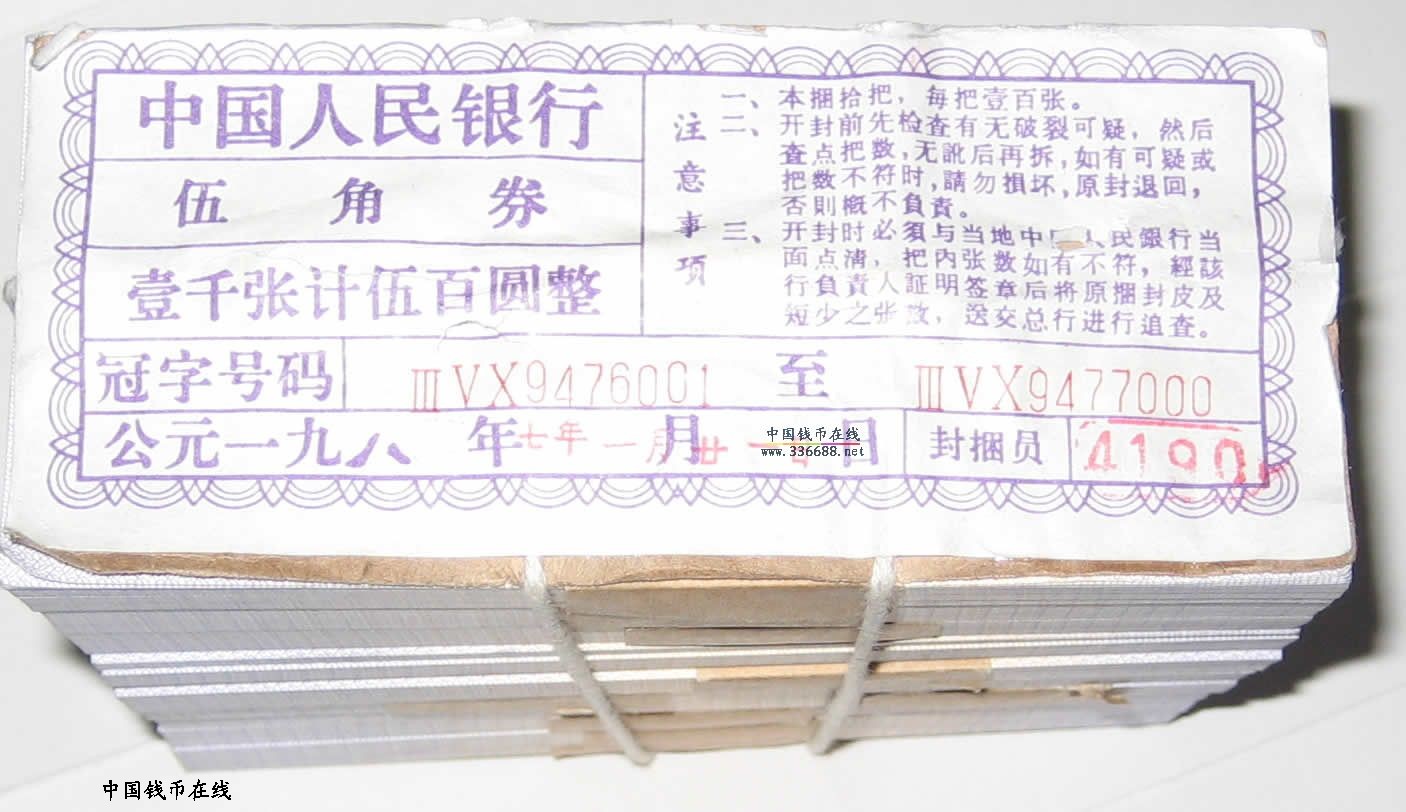 中国人民银行
伍角券
壹千张计伍百圆整
注意事项
一、本捆拾把，每把壹百张。
二、开封前先检查有无破裂可疑，然后
查点把数，无訛后再拆，如有可疑或
把数不符时，請勿損坏，原封退回，
否則概不負責。
三、开封时必須与当地中国人民銀行当
面点清，把内张数如有不符，經該
行負責人証明签章后将原捆封皮及
短少之张数，送交总行进行追查。
冠字号码 ⅢⅤⅩ9476001 至 ⅢⅤⅩ9477000
公元一九八 年七年一月月廿一日 封捆员 4190
中国钱币在线
www.336688.net
中国钱币在线